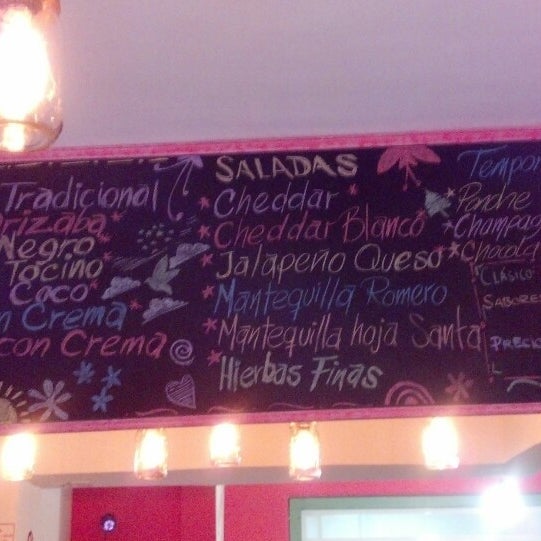 Tradicional
Orizaba
Negro
Tocino
Coco
n Crema
con Crema
SALADAS
Cheddar
Cheddar Blanco
Jalapeño Queso
Mantequilla Romero
Mantequilla hoja Santa
Hierbas Finas
Tempor
Ponche
Champag
Chocola
CLÁSICO
SABORES
PRECIO